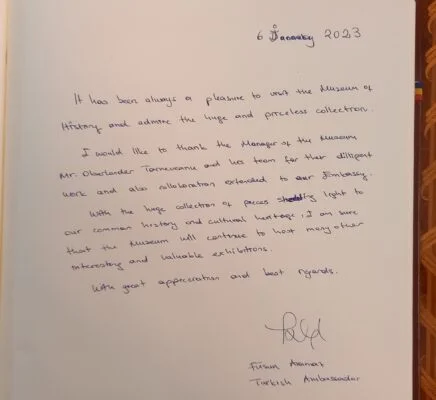 6 January 2023
It has been always a pleasure to visit the Museum of
History and admire the huge and priceless collection.
I would like to thank the Manager of the Museum
Mr. Oberlander Tarnoveanu and his team for their diligent
work and also collaboration extended to our Embassy.
With the huge collection of pieces shedding light to
our common history and cultural heritage, I am sure
that the Museum will continue to host many other
interesting and valuable exhibitions.
With great appreciation and best regards.
Füsun Aramaz
Turkish Ambassador